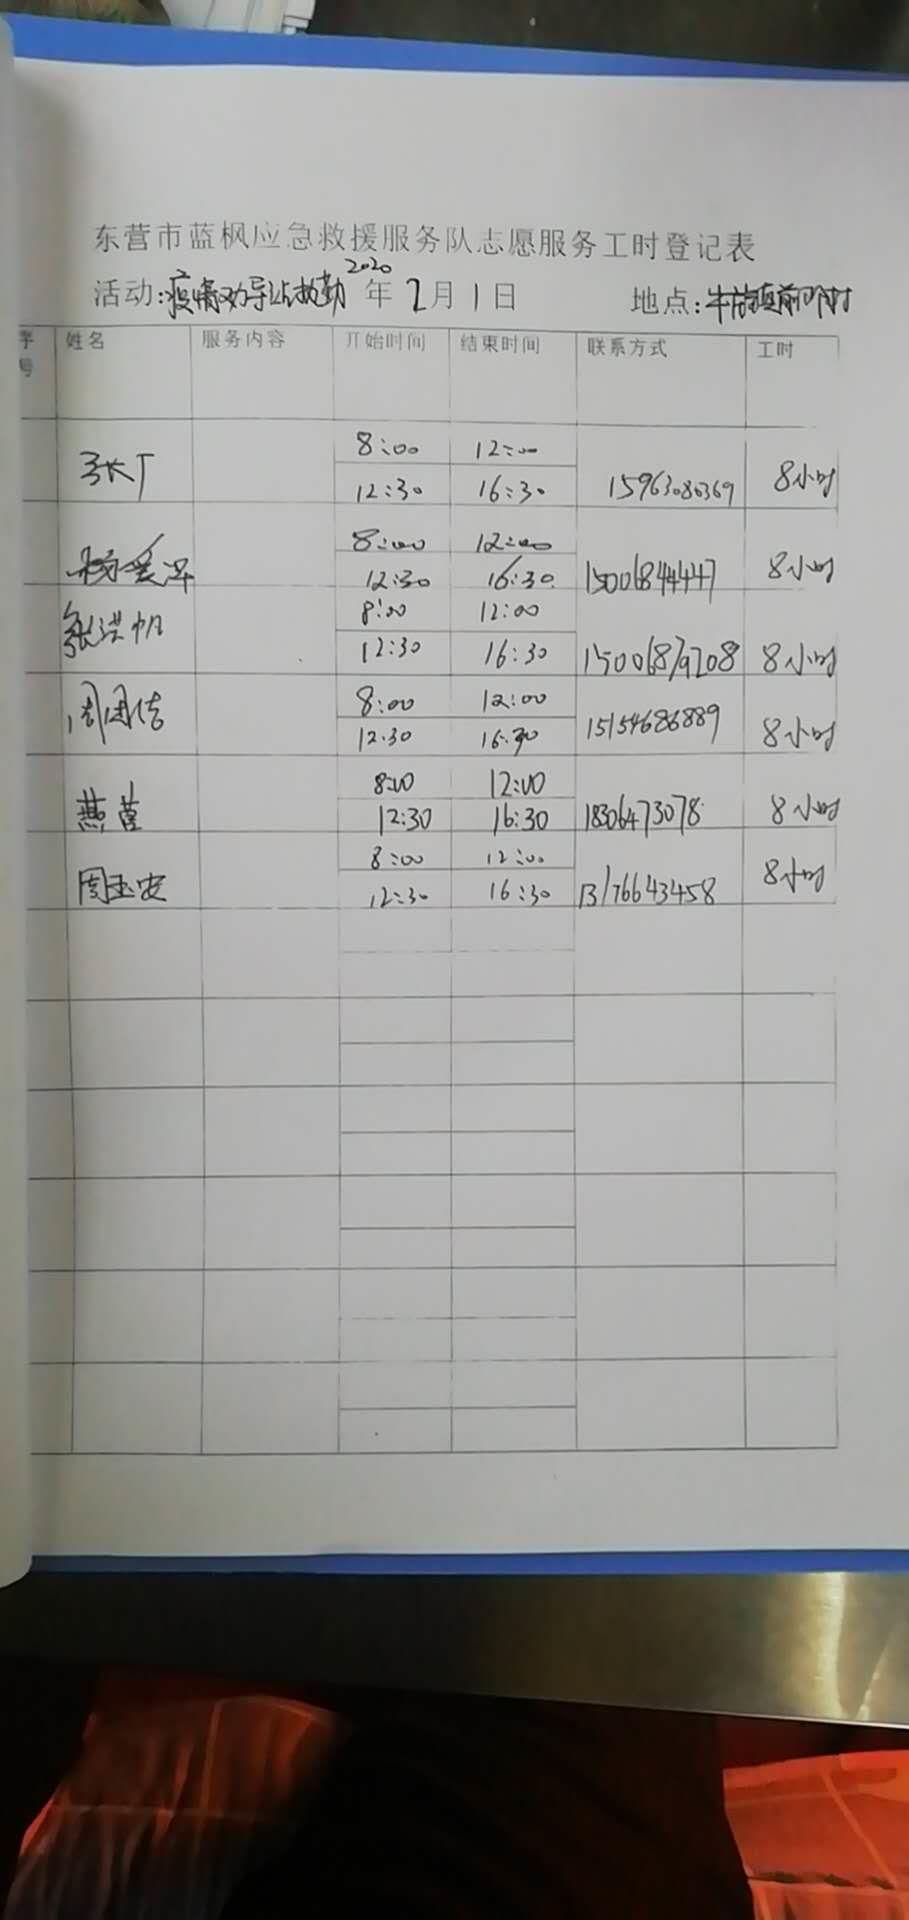 东营市蓝枫应急救援服务队志愿服务工时登记表
活动:疫情劝导站执勤 2020年2月1日 地点:牛庄镇前邵村
序号 姓名 服务内容 开始时间 结束时间 联系方式 工时
8:00 12:00
12:30 16:30 15963080369 8小时
8:00 12:00
12:30 16:30 15006844447 8小时
张洪帆 8:00 12:00
12:30 16:30 15006879208 8小时
周团结 8:00 12:00
12:30 16:30 15154686889 8小时
燕菖 8:00 12:00
12:30 16:30 18306473078 8小时
周玉安 8:00 12:00
12:30 16:30 13176643458 8小时